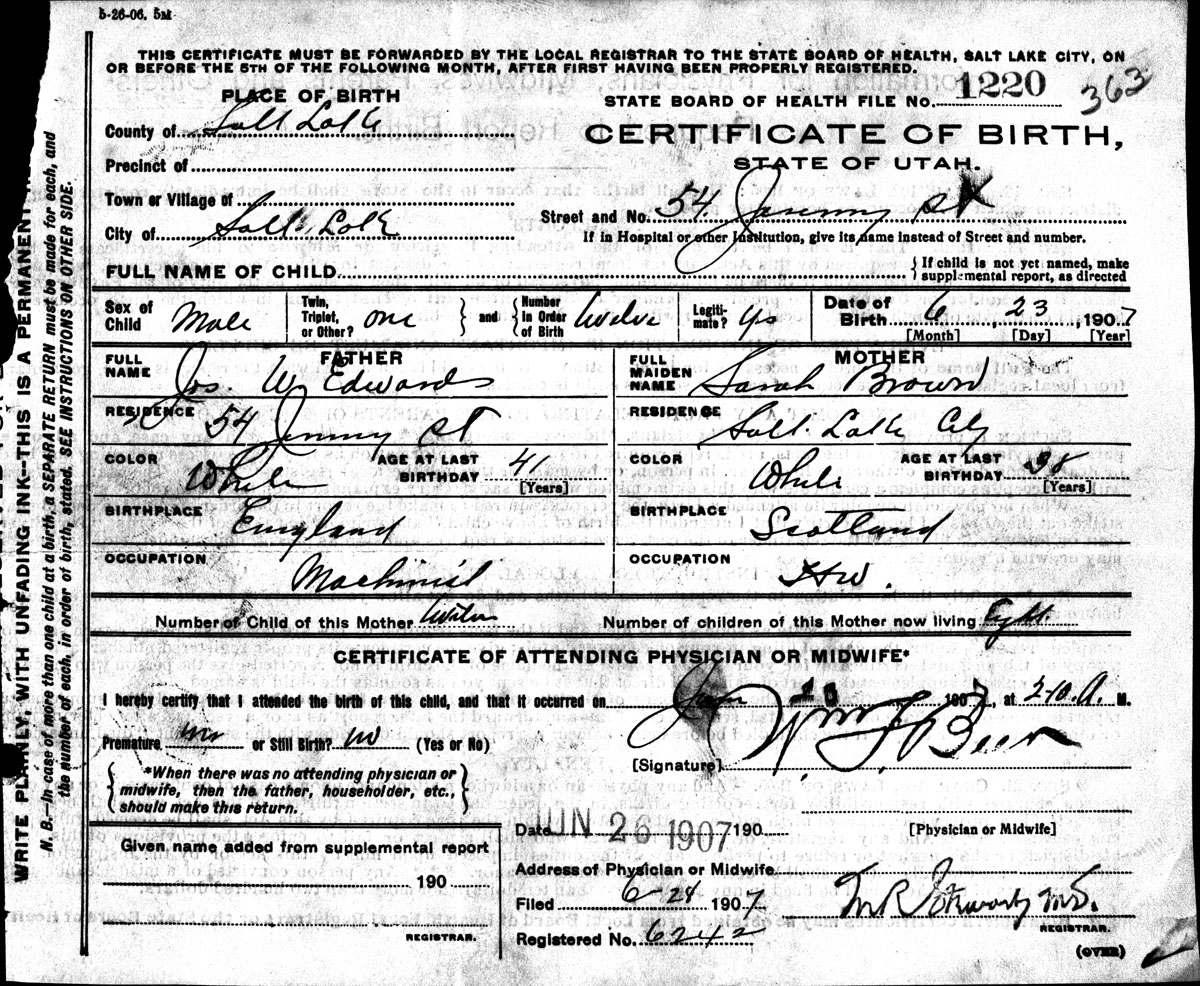 5-26-06. 5M
THIS CERTIFICATE MUST BE FORWARDED BY THE LOCAL REGISTRAR TO THE STATE BOARD OF HEALTH, SALT LAKE CITY, ON
OR BEFORE THE 5TH OF THE FOLLOWING MONTH, AFTER FIRST HAVING BEEN PROPERLY REGISTERED.
PLACE OF BIRTH
STATE BOARD OF HEALTH FILE NO. 1220 363
County of Salt Lake
CERTIFICATE OF BIRTH,
Precinct of
STATE OF UTAH.
Town or Village of
Street and No. 54 Jenny St
City of Salt Lake
If in Hospital or other Institution, give its name instead of Street and number.
FULL NAME OF CHILD
If child is not yet named, make
supplemental report, as directed
Sex of Child Male Twin, Triplet, or Other? one and Number in Order of Birth twelve Legiti- mate? Yes Date of Birth 6 23, 1907
[Month] [Day] [Year]
FATHER
FULL NAME Jos. W. Edwards
RESIDENCE 54 Jenny St
COLOR White AGE AT LAST BIRTHDAY 41 [Years]
BIRTHPLACE England
OCCUPATION Machinist
MOTHER
FULL MAIDEN NAME Sarah Brown
RESIDENCE Salt Lake City
COLOR White AGE AT LAST BIRTHDAY 38 [Years]
BIRTHPLACE Scotland
OCCUPATION HW.
Number of Child of this Mother twelve Number of children of this Mother now living Eight.
CERTIFICATE OF ATTENDING PHYSICIAN OR MIDWIFE*
I hereby certify that I attended the birth of this child, and that it occurred on 1907, at 2-10.A. M.
Premature no or Still Birth? no (Yes or No)
[Signature] Wm F Beer
*When there was no attending physician or
midwife, then the father, householder, etc.,
should make this return.
Date JUN 26 1907 190
[Physician or Midwife]
Given name added from supplemental report
190
REGISTRAR.
Address of Physician or Midwife
Filed 6-28 1907
M.D.
REGISTRAR.
Registered No. 6242
(OVER)
WRITE PLAINLY, WITH UNFADING INK--THIS IS A PERMANENT
N. B.--In case of more than one child at a birth, a SEPARATE RETURN must be made for each, and
the number of each, in order of birth, stated. SEE INSTRUCTIONS ON OTHER SIDE.